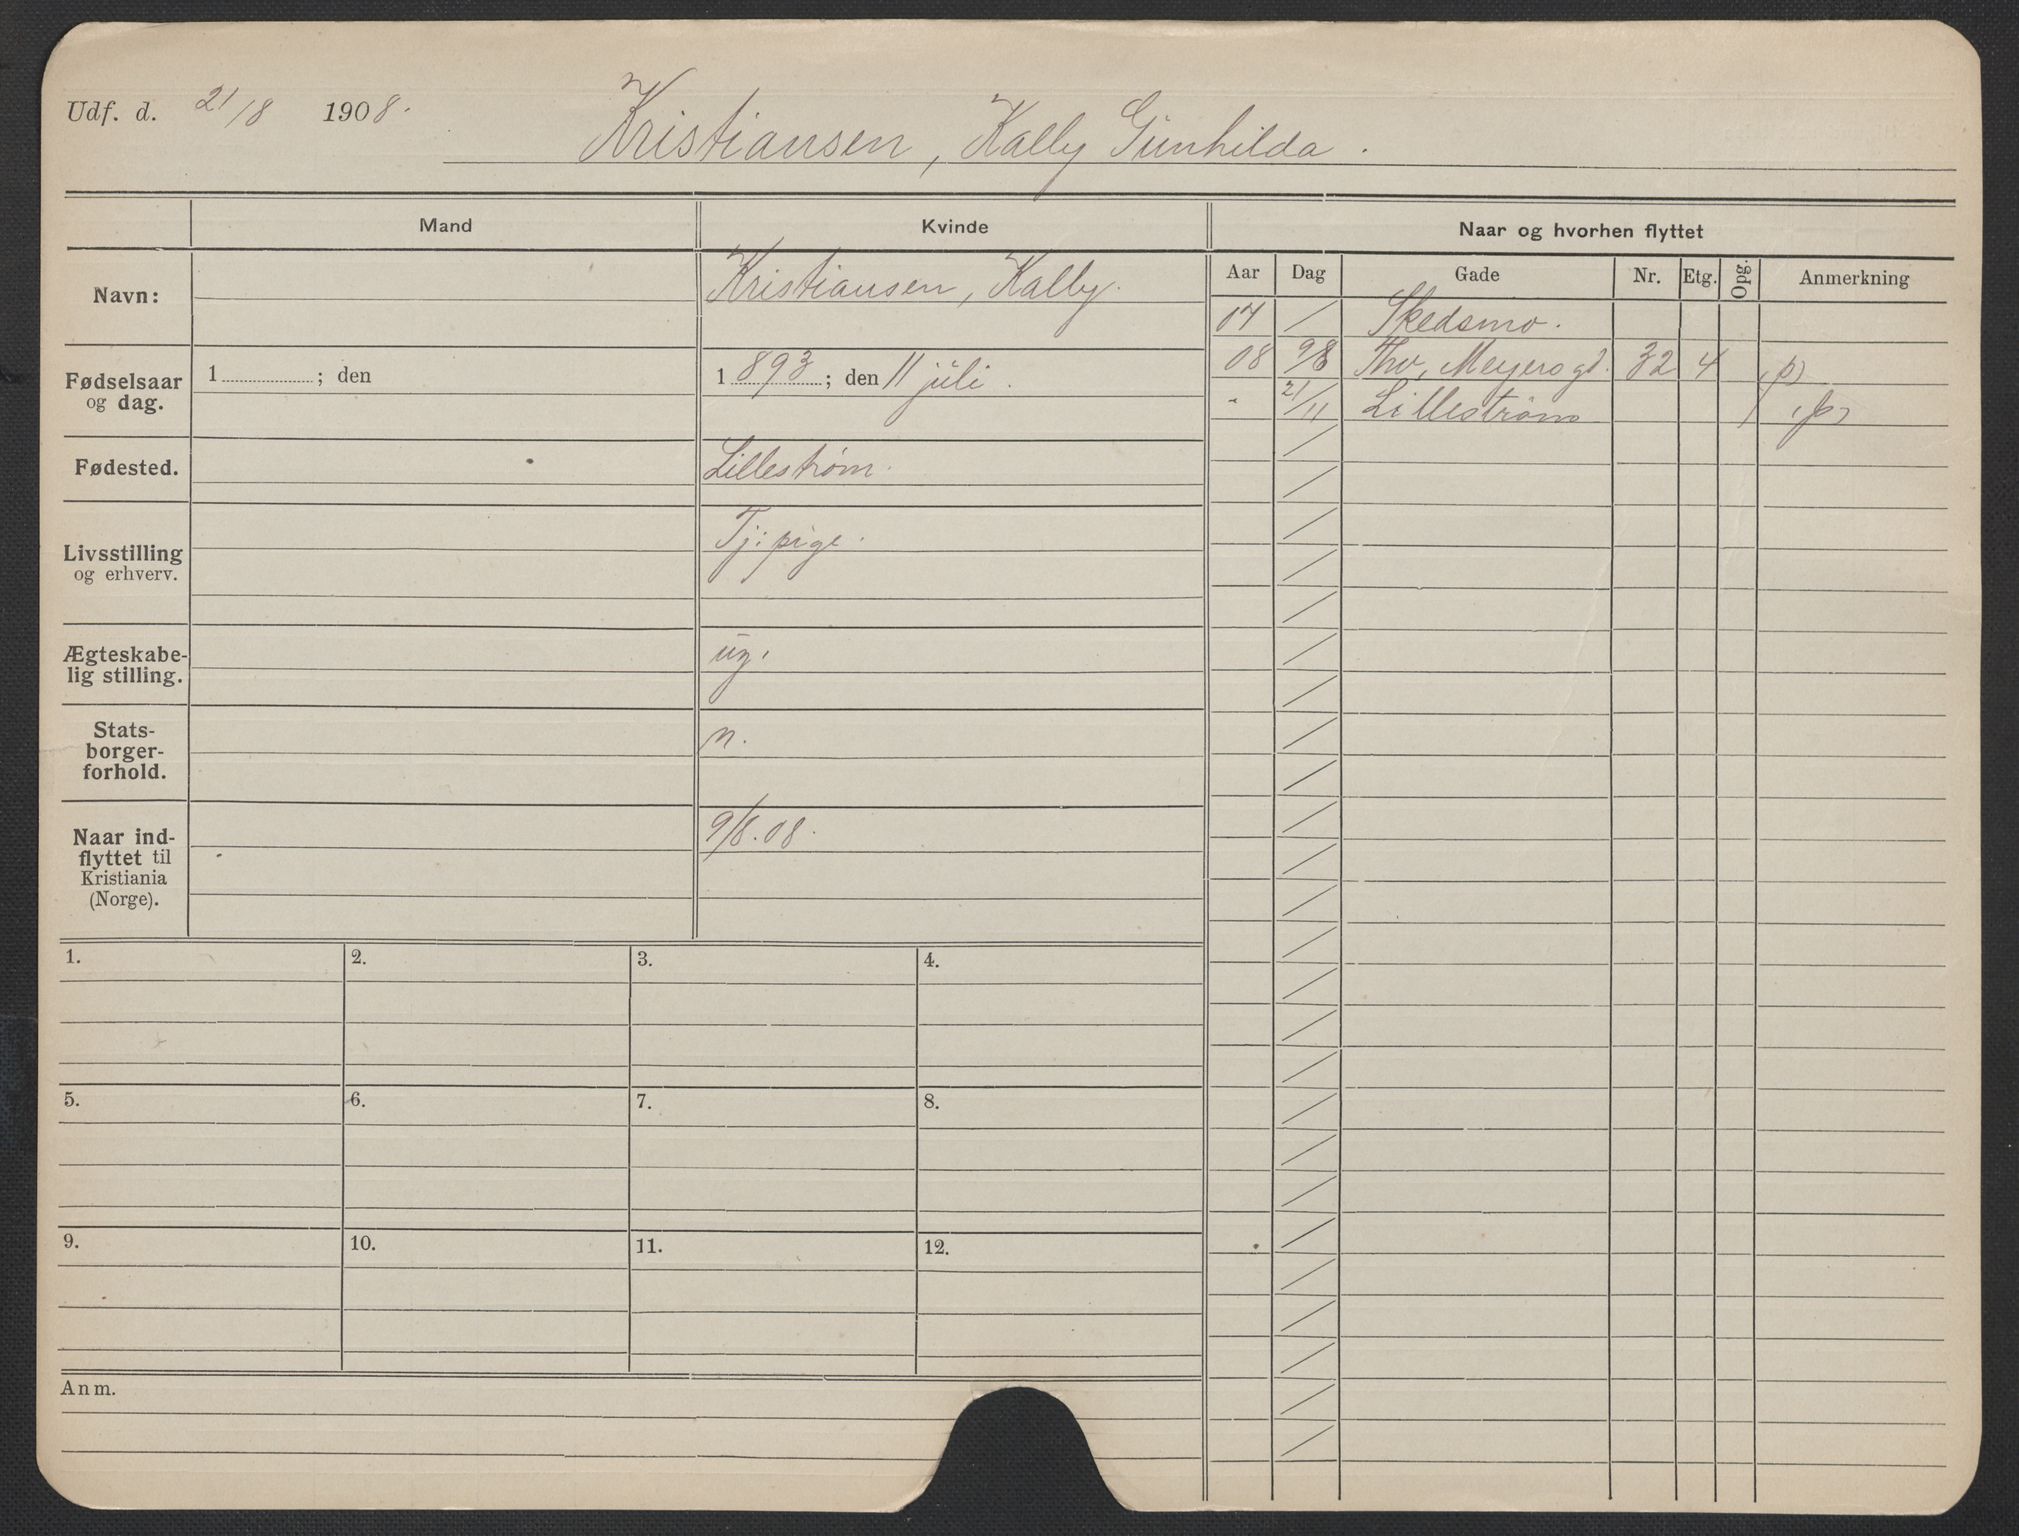 Udf. d. 21/8 1908.
Kristiansen, Kally Gunhilda.
Mand
Kvinde
Naar og hvorhen flyttet
Navn:
Kristiansen, Kally.
Aar Dag Gade Nr. Etg. Opg. Anmerkning
07 / Skedsmo.
08 9/8 Thv. Meyersgd. 32 4 (p)
- 21/11 Lillestrøm (p)
Fødselsaar
og dag.
1 ; den
1893; den 11 juli.
Fødested.
Lillestrøm.
Livsstilling
og erhverv.
Tj: pige.
Ægteskabe-
lig stilling.
ug.
Stats-
borger-
forhold.
n.
Naar ind-
flyttet til
Kristiania
(Norge).
9/8.08.
1. 2. 3. 4.
5. 6. 7. 8.
9. 10. 11. 12.
Anm.